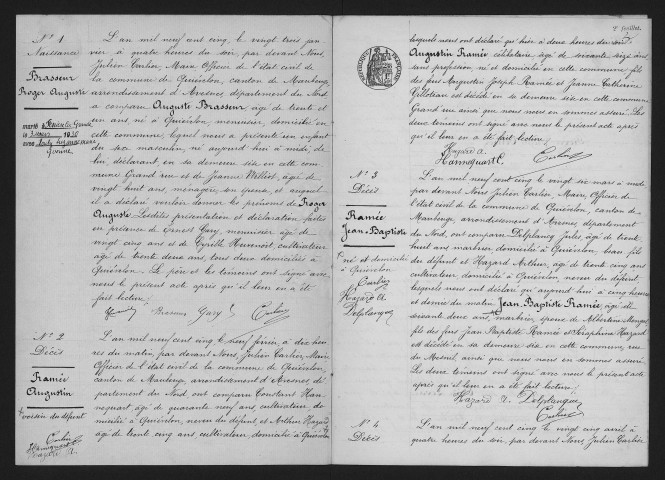 N° 1
Naissance
Brasseur
Roger Auguste
L'an mil neuf cent cinq, le vingt trois jan
vier à quatre heures du soir, par devant Nous,
Julien Carlier, Maire Officier de l'état civil de
la commune de Quiévelon, canton de Maubeuge,
arrondissement d'Avesnes, département du Nord
a comparu Auguste Brasseur, âgé de trente et
un ans né à Quiévelon, menuisier, domicilié en
cette commune, lequel nous a présenté un enfant
du sexe masculin, né aujourd'hui à midi, de
lui, déclarant en sa demeure sise en cette com
mune Grand rue et de Jeanne Williot, âgée de
vingt huit ans, ménagère, son épouse, et auquel
il a déclaré vouloir donner les prénoms de Roger
Auguste. Lesdites présentation et déclaration faites
en présence de Ernest Gary, menuisier âgé de
vingt cinq ans et de Cyrille cultivateur
âgé de trente deux ans, tous deux domiciliés à
Quiévelon. Le père et les témoins ont signé avec
nous le présent acte après qu'il leur en a été
fait lecture.
Brasseur Gary Carlier
N° 2
Décès
Ramée
Augustin
voisin du défunt
Carlier
Hannoquart C.
Hazard A.
L'an mil neuf cent cinq le neuf février, à dix heu
res du matin, par devant Nous, Julien Carlier, Maire
Officier de l'état civil de la commune de Quiévelon,
canton de Maubeuge, arrondissement d'Avesnes dé
partement du Nord ont comparu Constant Han
noquart âgé de quarante neuf ans, cultivateur do
micilié à Quiévelon, neveu du défunt et Arthur Hazard
âgé de trente cinq ans, cultivateur, domicilié à Quiévelon
2e feuillet.
lesquels nous ont déclaré qu'hier à deux heures du soir
Augustin Ramée célibataire âgé de soixante seize ans,
sans profession, né et domicilié en cette commune, fils
des feus Augustin Joseph Ramée et Jeanne Catherine
est décédé en sa demeure sise en cette commune
Grand rue ainsi que nous nous en sommes assuré. Les
deux témoins ont signé avec nous le présent acte après
qu'il leur en a été fait lecture.
Hazard A.
Hannoquart C. Carlier
N° 3
Décès
Ramée
Jean-Baptiste
né et domicilié
à Quiévelon
Carlier
Hazard A.
Delplanque
L'an mil neuf cent cinq le vingt six mars à midi
par devant Nous, Julien Carlier Maire, Officier de
l'état civil de la commune de Quiévelon, canton de
Maubeuge, arrondissement d'Avesnes, département
du Nord, ont comparu Delplancq Jules, âgé de trente
huit ans, marbrier, domicilié à Quiévelon, beau fils
du défunt et Hazard Arthur, âgé de trente cinq ans
cultivateur domicilié à Quiévelon neveu du défunt,
lesquels nous ont déclaré qu'aujourd'hui à cinq heures
et demie du matin, Jean Baptiste Ramée, âgé de
soixante deux ans, marbrier, époux de Albertine
fils des feus Jean Baptiste Ramée et Séraphine Hazard
est décédé en sa demeure sise en cette commune, rue
du Mesnil, ainsi que nous nous en sommes assuré.
Les deux témoins ont signé avec nous le présent acte
après qu'il leur en a été fait lecture.
Hazard A. Delplanque
Carlier
N° 4
Décès
L'an mil neuf cent cinq le vingt cinq avril à
quatre heures du soir, par devant Nous Julien Carlier